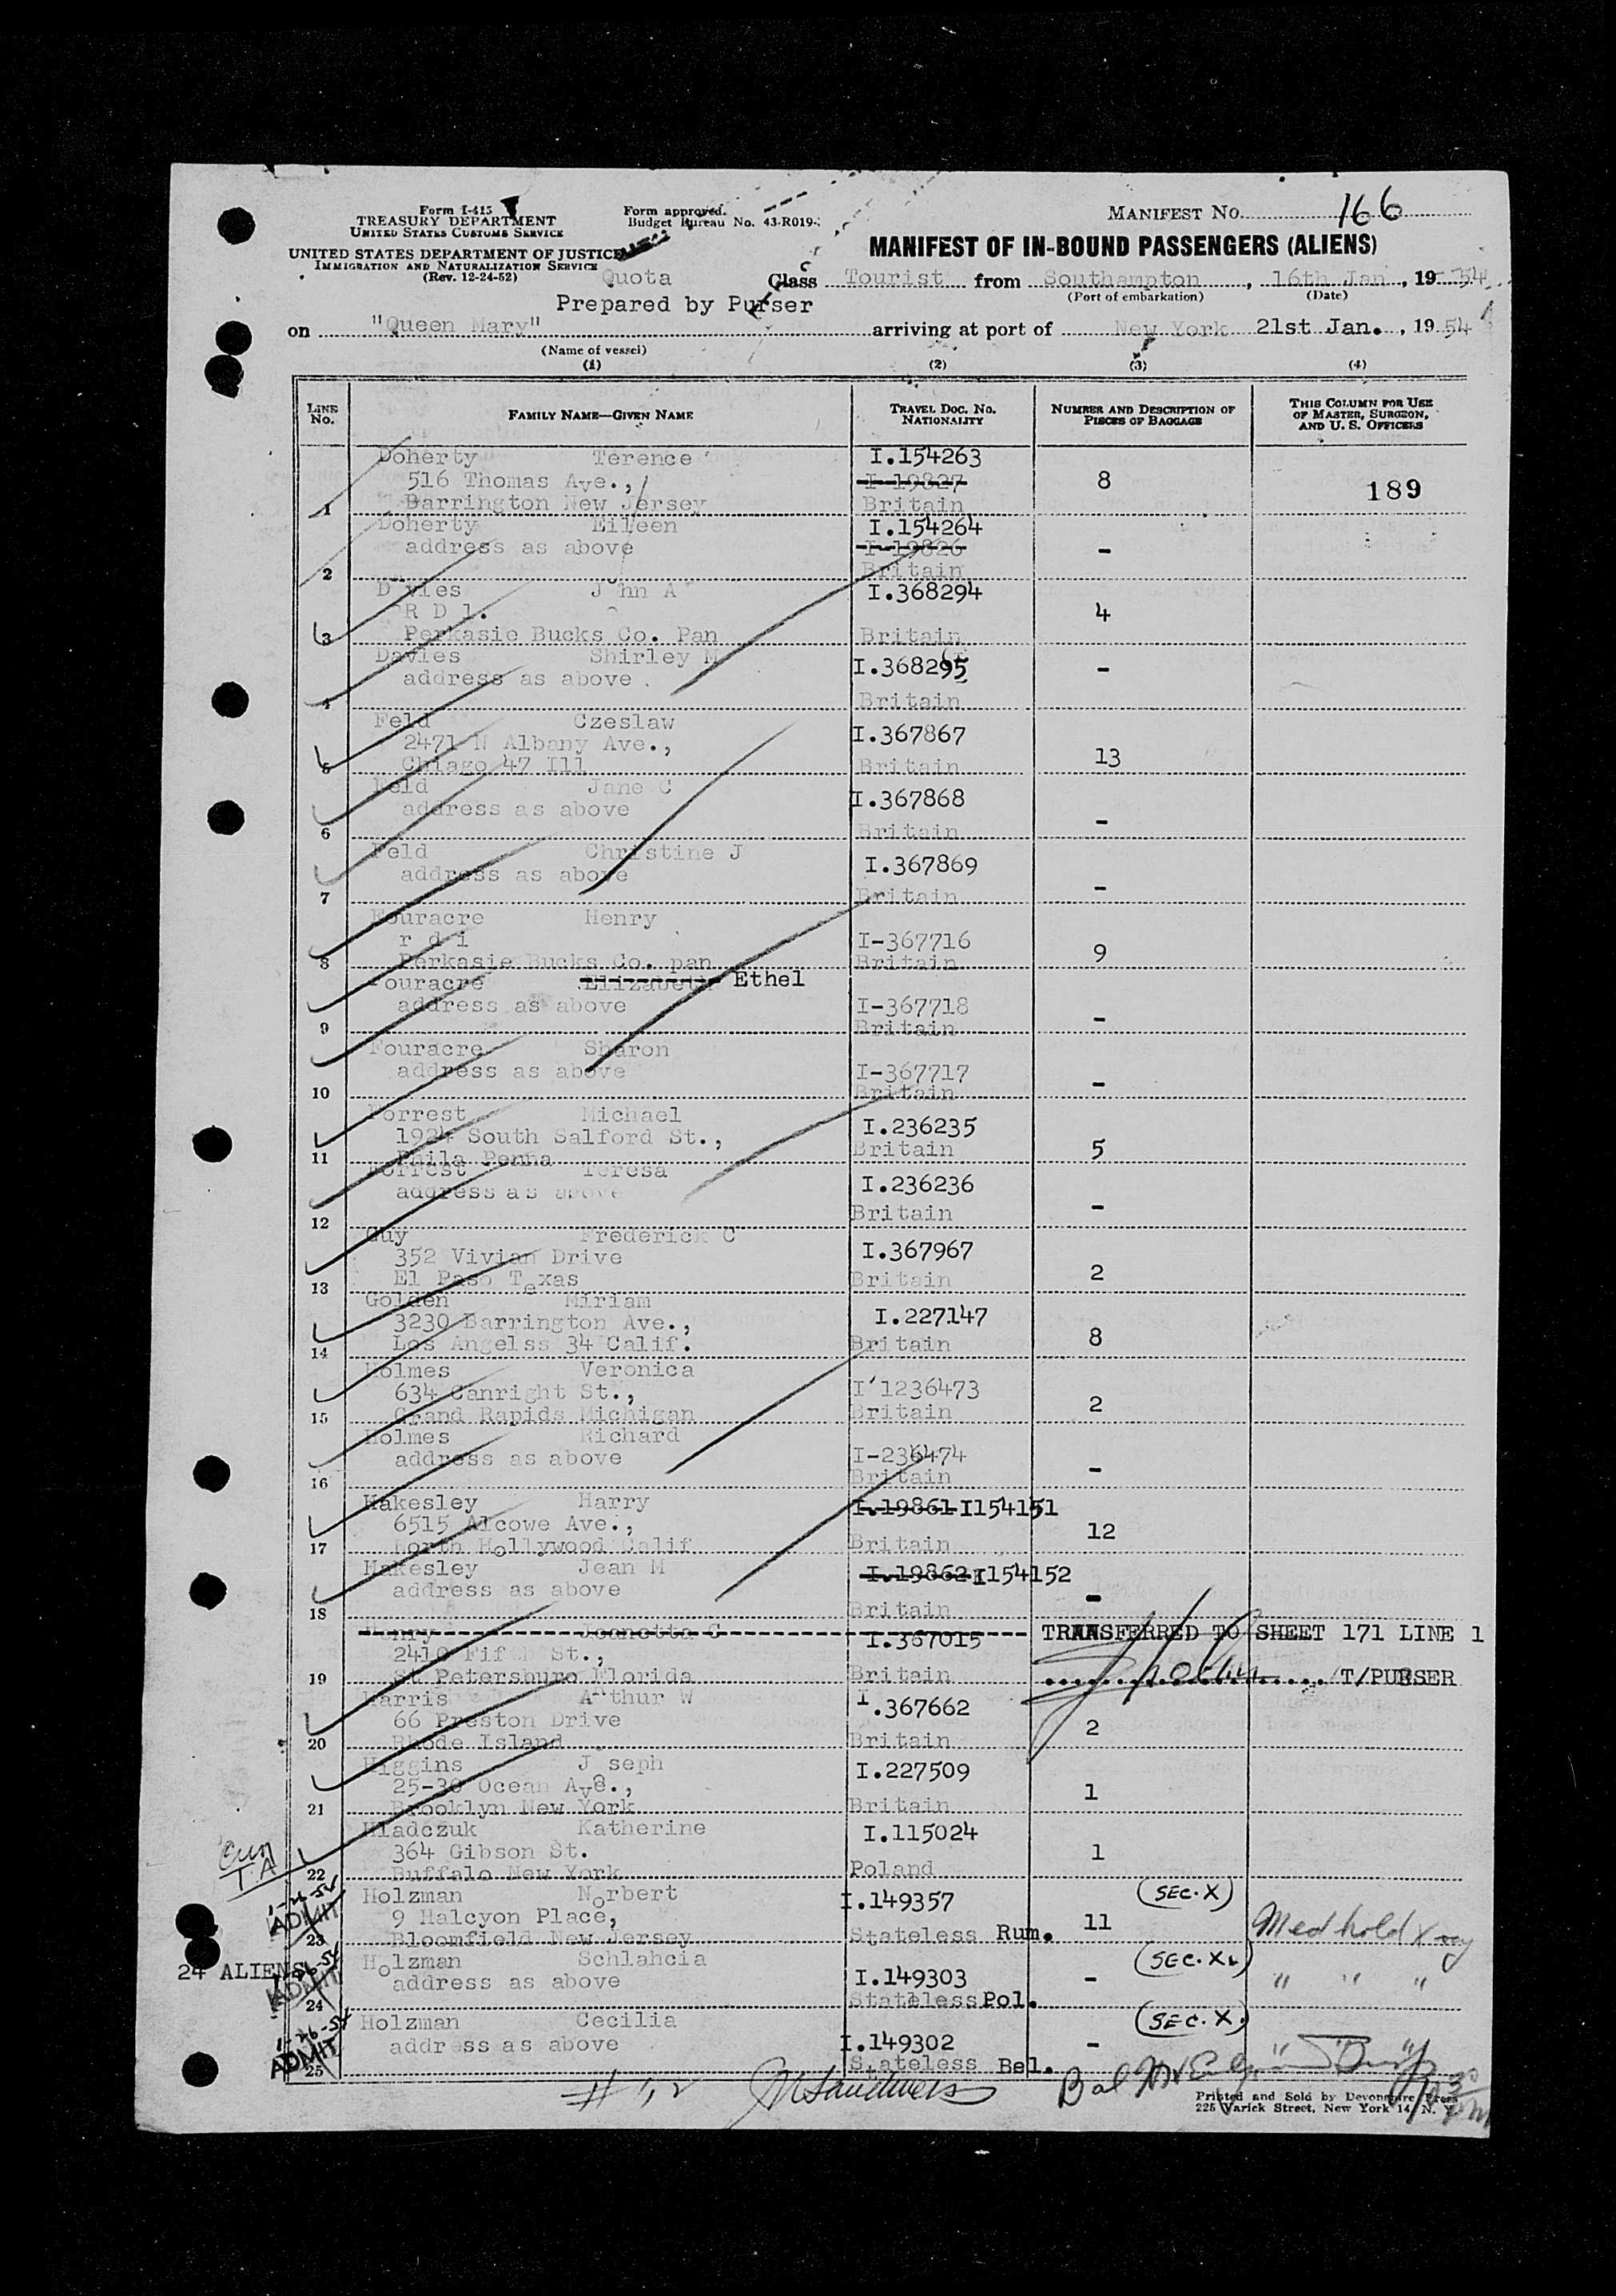 Form I-415
TREASURY DEPARTMENT
UNITED STATES CUSTOMS SERVICE
UNITED STATES DEPARTMENT OF JUSTICE
IMMIGRATION AND NATURALIZATION SERVICE
(Rev. 12-24-52)
Form approved.
Budget Bureau No. 43-R019-
MANIFEST NO. 166
MANIFEST OF IN-BOUND PASSENGERS (ALIENS)
Quota Class Tourist from Southampton, 16th Jan, 1954
(Port of embarkation) (Date)
Prepared by Purser
on "Queen Mary" arriving at port of New York 21st Jan., 1954
(Name of vessel)
(1) (2) (3) (4)
LINE NO. FAMILY NAME—GIVEN NAME TRAVEL DOC. NO. NATIONALITY NUMBER AND DESCRIPTION OF PIECES OF BAGGAGE THIS COLUMN FOR USE OF MASTER, SURGEON, AND U. S. OFFICERS
Doherty Terence I.154263
516 Thomas Ave., I-19827 8 189
1 Barrington New Jersey Britain
Doherty Eileen I.154264
address as above I-19826 -
2 Britain
Davies John A I.368294
R D 1. 4
3 Perkasie Bucks Co. Pan Britain
Davies Shirley M I.368295
address as above. -
4 Britain
Feld Czeslaw I.367867
2471 N Albany Ave., 13
5 Chiago 47 Ill Britain
Feld Jane C I.367868
address as above -
6 Britain
Feld Christine J I.367869
address as above -
7 Britain
Fouracre Henry
r d i I-367716 9
8 Perkasie Bucks Co. pan Britain
Fouracre Elizabeth Ethel
address as above I-367718 -
9 Britain
Fouracre Sharon
address as above I-367717 -
10 Britain
Forrest Michael I.236235
1924 South Salford St., Britain 5
11 Phila Penna
Forrest Teresa I.236236
address as above -
12 Britain
Guy Frederick C I.367967
352 Vivian Drive 2
13 El Paso Texas Britain
Golden Miriam I.227147
3230 Barrington Ave., 8
14 Los Angelss 34 Calif. Britain
Holmes Veronica
634 Canright St., I'1236473 2
15 Grand Rapids Michigan Britain
Holmes Richard
address as above I-236474 -
16 Britain
Hakesley Harry I.19861 I154151
6515 Alcowe Ave., 12
17 North Hollywood Calif Britain
Hakesley Jean M I.19862 I154152
address as above -
18 Britain
Henry Jeanetta C I.367015 TRANSFERRED TO SHEET 171 LINE 1
2410 Fifth St.,
19 St Petersburg Florida Britain T/PURSER
Harris Arthur W I.367662
66 Preston Drive 2
20 Rhode Island Britain
Higgins Joseph I.227509
25-30 Ocean Ave., 1
21 Brooklyn New York Britain
Hladczuk Katherine I.115024
364 Gibson St. 1
22 Buffalo New York Poland
Holzman Norbert I.149357 (SEC. X)
9 Halcyon Place, 11 Med hold X ray
23 Bloomfield New Jersey Stateless Rum.
1-26-54 ADMIT
Holzman Schlahcia (SEC. X)
24 ALIENS address as above I.149303 - " " "
24 Stateless Pol.
ADMIT
Holzman Cecilia (SEC. X)
address as above I.149302 -
25 Stateless Bel.
1-26-54 ADMIT
Printed and Sold by Devonshire Press
225 Varick Street, New York 14, N. Y.